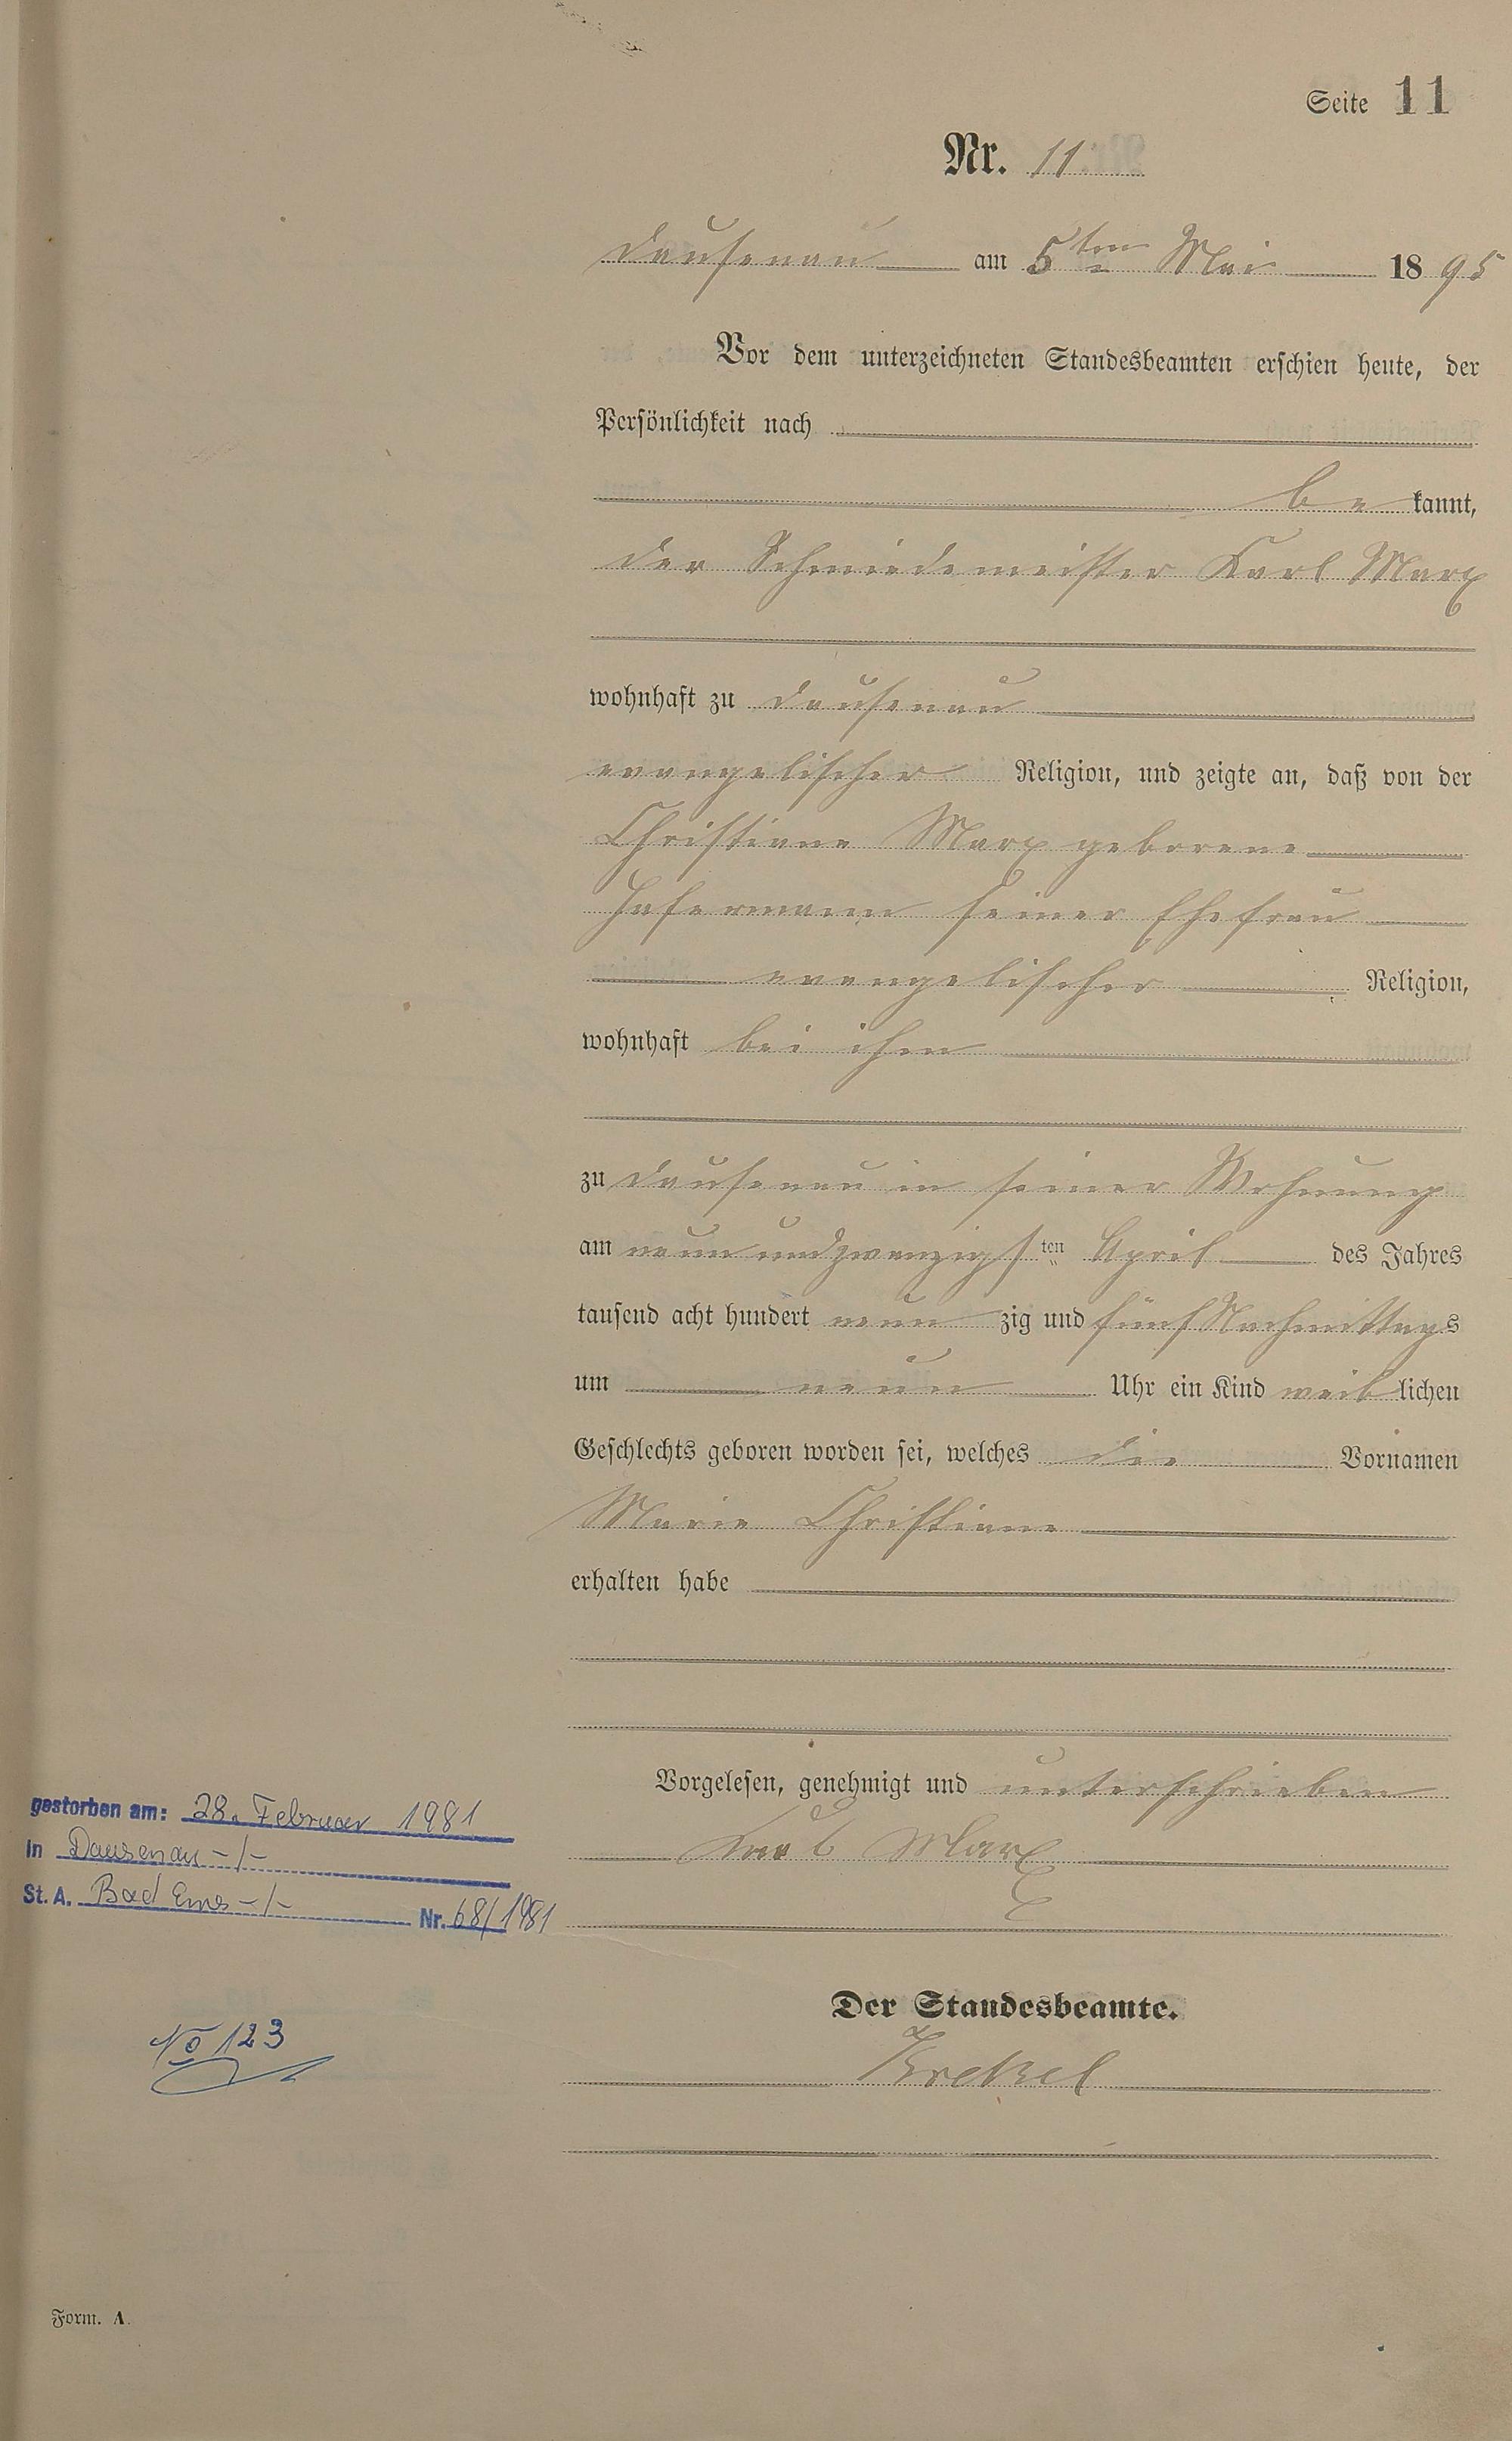 Seite 11
Nr. 11.
Dausenau am 5ten Mai 1895
Vor dem unterzeichneten Standesbeamten erschien heute, der
Persönlichkeit nach
be kannt,
der Schmiedemeister Karl Marx
wohnhaft zu Dausenau
evangelischer Religion, und zeigte an, daß von der
Christiane Marx geborene
Hafermann seiner Ehefrau
evangelischer Religion,
wohnhaft bei ihm
zu Dausenau in seiner Wohnung
am neun und zwanzigsten April des Jahres
tausend acht hundert neun zig und fünf Nachmittags
um neun Uhr ein Kind weiblichen
Geschlechts geboren worden sei, welches die Vornamen
Marie Christiane
erhalten habe
Vorgelesen, genehmigt und unterschrieben
Karl Marx
Der Standesbeamte.
Krekel
gestorben am: 28. Februar 1981
in Dausenau -/-
St. A. Bad Ems -/- Nr. 68/1981
No 123
Form. A.